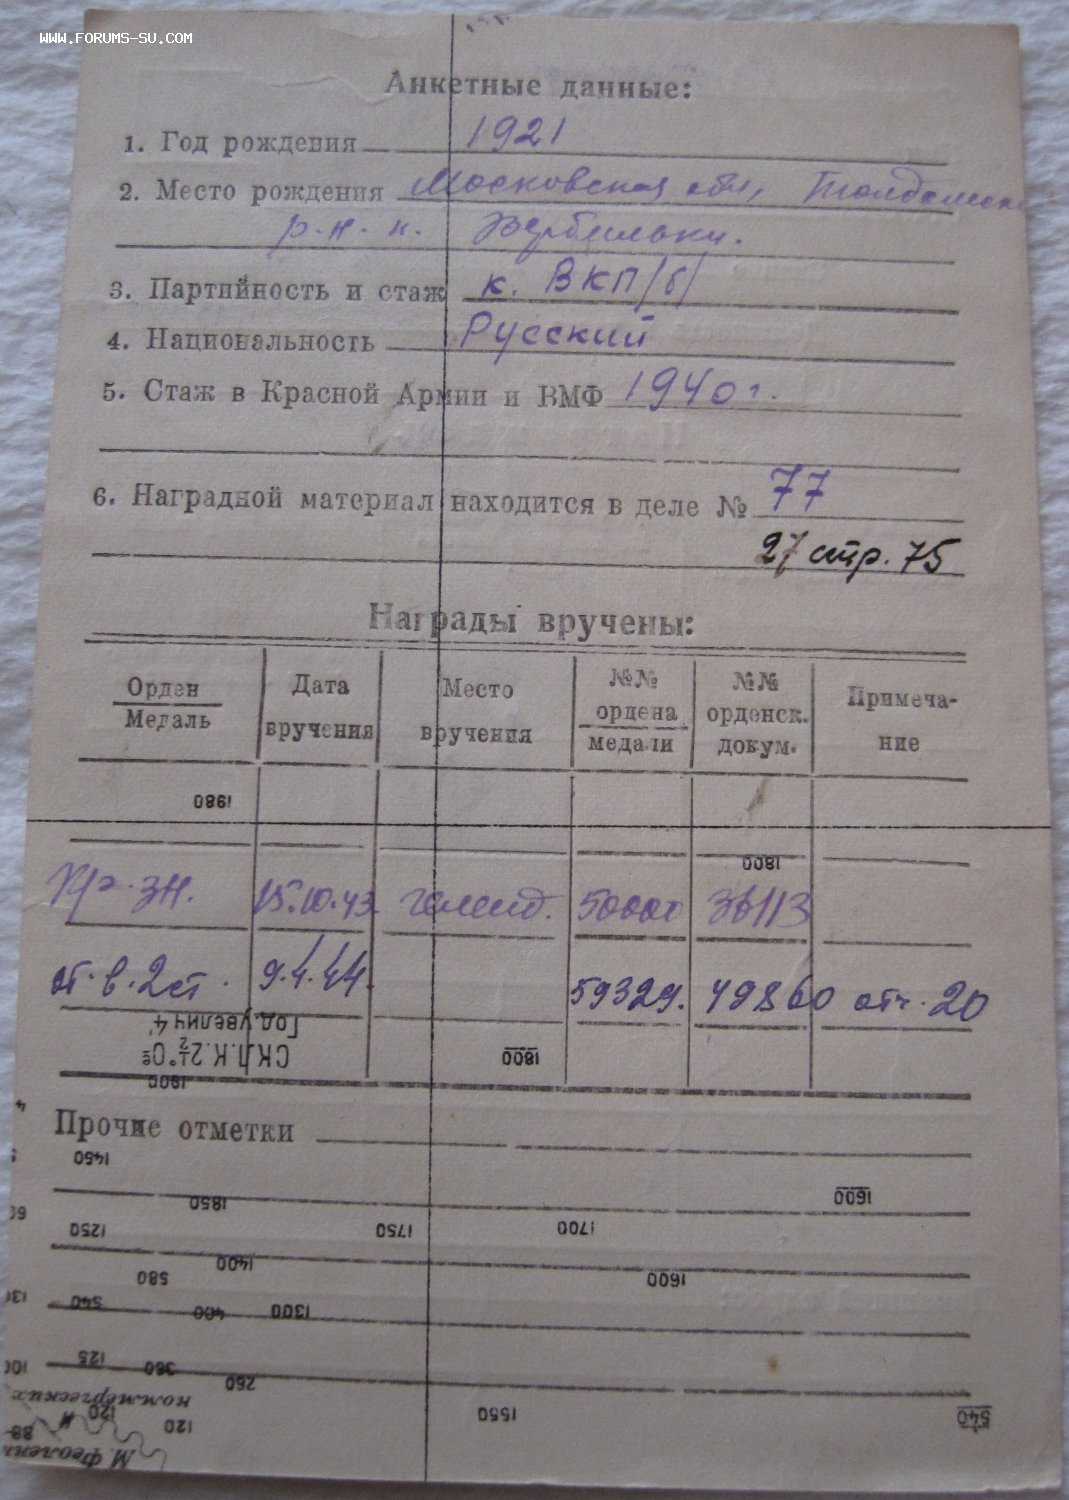 WWW.FORUMS-SU.COM
Анкетные данные:
1. Год рождения 1921
2. Место рождения Московская обл,
р-н. п. Вербильки.
3. Партийность и стаж к. ВКП/б/
4. Национальность Русский
5. Стаж в Красной Армии и ВМФ 1940 г.
6. Наградной материал находится в деле № 77
27 стр. 75
Награды вручены:
Орден Медаль Дата вручения Место вручения №№ ордена медали №№ орденск. докум. Примечание
1980
1800
Кр. зн. 15.10.43. геленд. 50000 36113
от. в. 2 ст. 9.4.44. 59329. 49860 отч. 20
Год. увелич 4'
СКЛ.К.2½°Os
1800
1900
Прочие отметки
1450
1850
1600
1250
1750
1700
1400
580
1600
540
400
1300
125
360
260
коммерческих
120
120
1550
540
88
М. Феолент